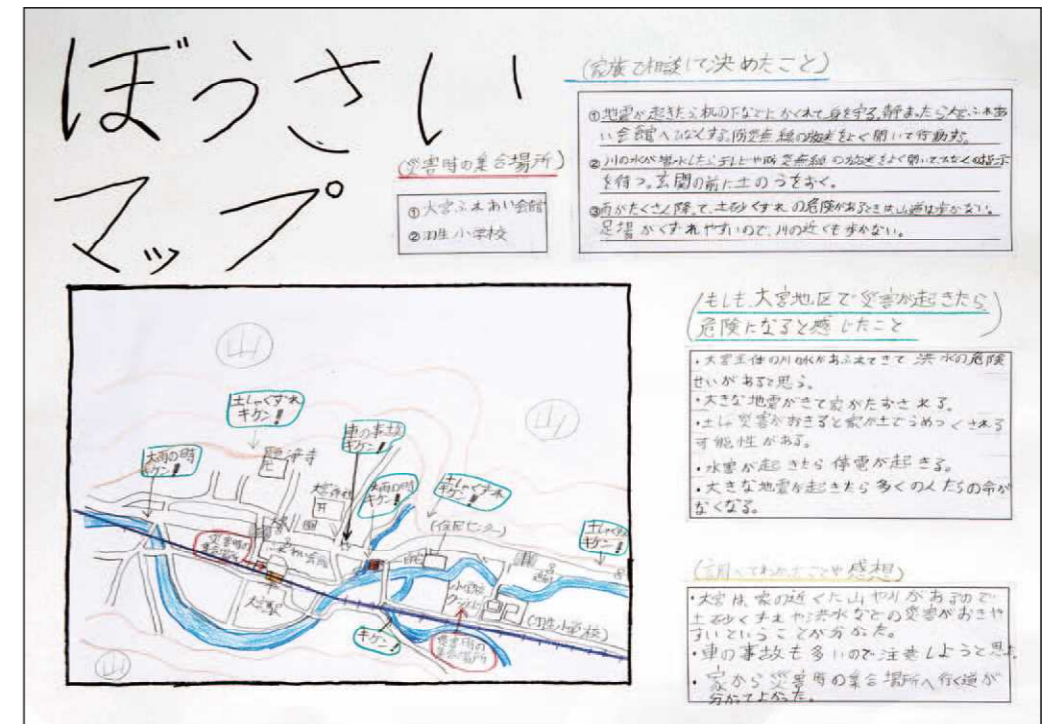 ぼうさい
マップ
(災害時の集合場所)
①大宮ふれあい会館
②羽生小学校
(家族で相談して決めたこと)
①地震が起きたら机の下などにかくれて身を守る。静まったら大宮ふれあ
い会館へひなんする。防災無線の放送をよく聞いて行動する。
②川の水が増水したらテレビや防災無線の放送をよく聞いてひなんの指示
を待つ。玄関の前に土のうをおく。
③雨がたくさん降って、土砂くずれの危険があるときは山道は歩かない。
足場がくずれやすいので、川の近くも歩かない。
(もしも、大宮地区で災害が起きたら
危険になると感じたこと)
・大宮全体の川の水があふれてきて洪水の危険
せいがあると思う。
・大きな地震がきて家がたおされる。
・土しゃ災害がおきると家が土でうめつくされる
可能性がある。
・水害が起きたら停電が起きる。
・大きな地震が起きたら多くの人たちの命が
なくなる。
(調べてわかったことや感想)
・大宮は、家の近くに山や川があるので
土砂くずれや洪水などの災害がおきや
すいということが分かった。
・車の事故も多いので注意しようと思う。
・家から災害時の集合場所へ行く道が
分かってよかった。
山
山
土しゃくずれ
キケン!
大雨の時
キケン!
車の事故
キケン!
大雨の時
キケン!
土しゃくずれ
キケン!
土しゃくずれ
キケン!
災害時の
集合場所
ふれあい会館
大宮駅
(住民センター)
小学校
グランド
(羽生小学校)
キケン!
災害時の
集合場所
山